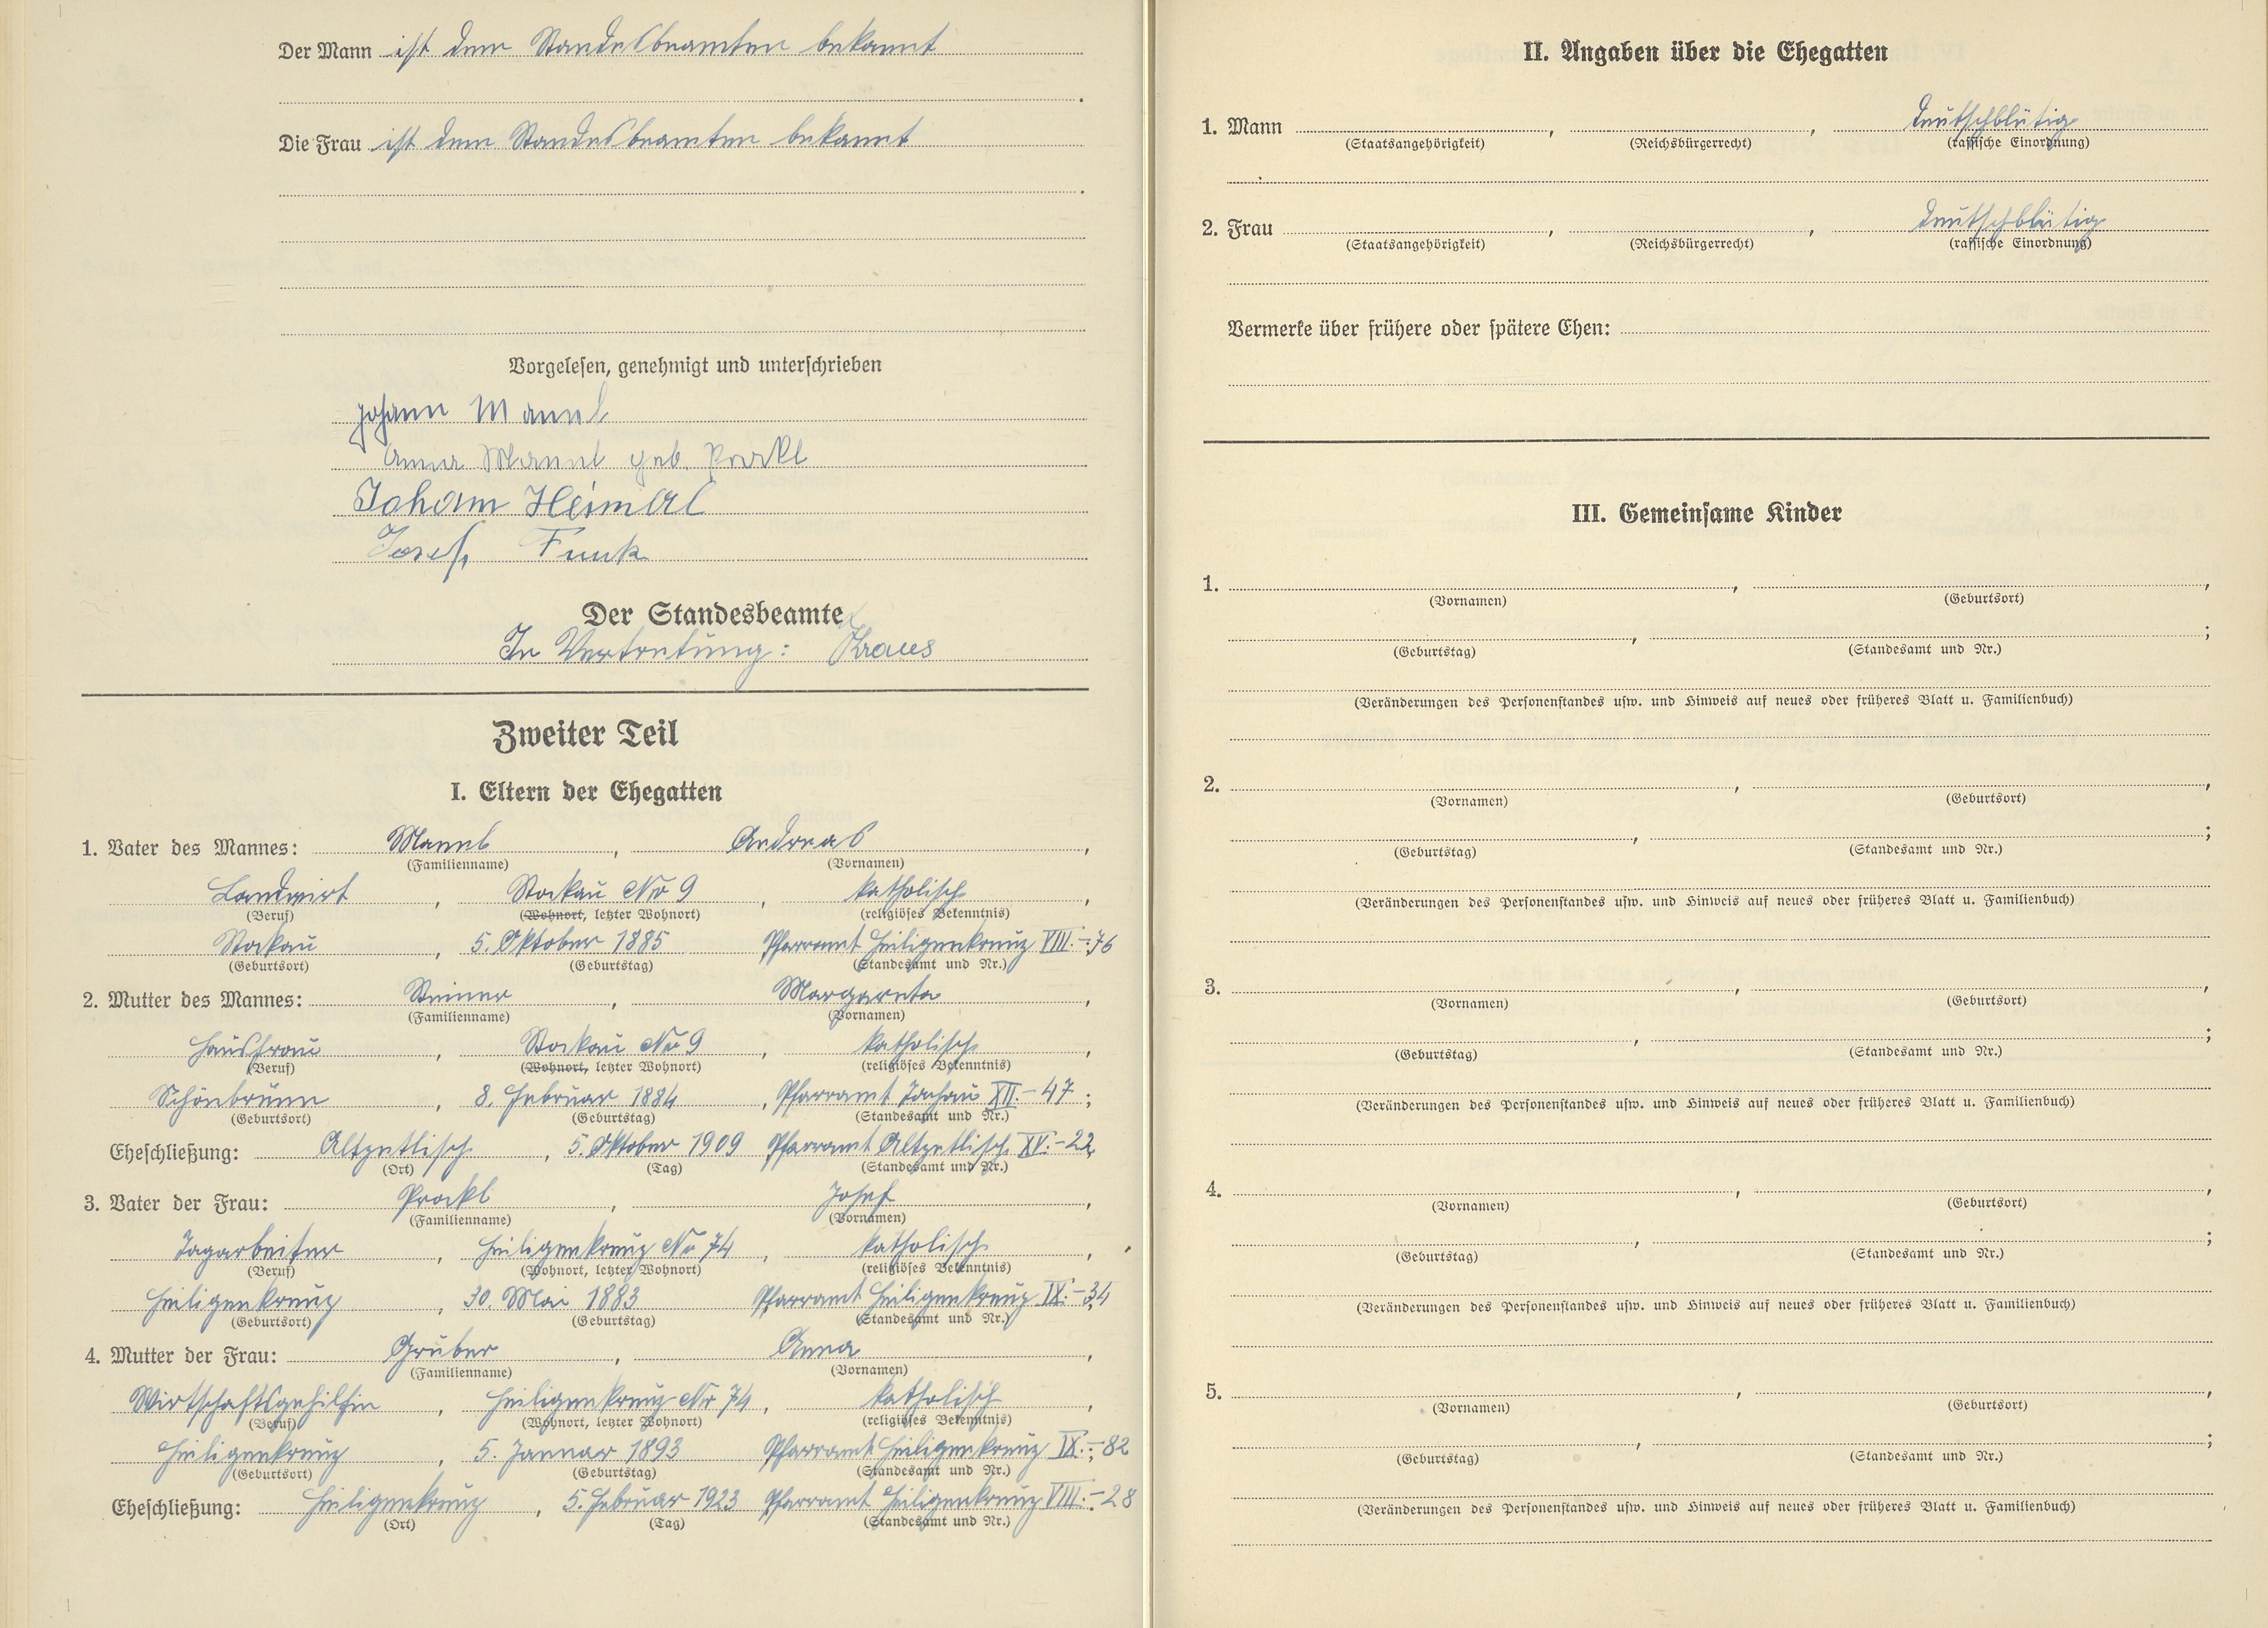 Der Mann ist dem Standesbeamten bekannt
.
Die Frau ist dem Standesbeamten bekannt
.
Vorgelesen, genehmigt und unterschrieben
Johann Mannl
Anna Mannl geb. Prockl
Johann Heimerl
Josef Funk
Der Standesbeamte
In Vertretung: Kraus
Zweiter Teil
I. Eltern der Ehegatten
1. Vater des Mannes: Mannl, Andreas,
(Familienname) (Vornamen)
Landwirt, Stockau No 9, katholisch,
(Beruf) (Wohnort, letzter Wohnort) (religiöses Bekenntnis)
Stockau, 5. Oktober 1885 Pfarramt Heiligenkreuz VIII.-76
(Geburtsort) (Geburtstag) (Standesamt und Nr.)
2. Mutter des Mannes: Steiner, Margareta,
(Familienname) (Vornamen)
Hausfrau, Stockau No 9, katholisch,
(Beruf) (Wohnort, letzter Wohnort) (religiöses Bekenntnis)
Schönbrunn, 8. Februar 1884, Pfarramt Tachau XII.-47;
(Geburtsort) (Geburtstag) (Standesamt und Nr.)
Eheschließung: Altzetlisch, 5. Oktober 1909 Pfarramt Altzetlisch XV.-22
(Ort) (Tag) (Standesamt und Nr.)
3. Vater der Frau: Prockl, Josef,
(Familienname) (Vornamen)
Tagarbeiter, Heiligenkreuz No 74, katholisch,
(Beruf) (Wohnort, letzter Wohnort) (religiöses Bekenntnis)
Heiligenkreuz, 30. Mai 1883 Pfarramt Heiligenkreuz IX.-34
(Geburtsort) (Geburtstag) (Standesamt und Nr.)
4. Mutter der Frau: Gruber, Anna,
(Familienname) (Vornamen)
Wirtschaftsgehilfin, Heiligenkreuz No 74, katholisch,
(Beruf) (Wohnort, letzter Wohnort) (religiöses Bekenntnis)
Heiligenkreuz, 5. Januar 1893 Pfarramt Heiligenkreuz IX.-82
(Geburtsort) (Geburtstag) (Standesamt und Nr.)
Eheschließung: Heiligenkreuz, 5. Februar 1923 Pfarramt Heiligenkreuz VIII.-28
(Ort) (Tag) (Standesamt und Nr.)
II. Angaben über die Ehegatten
1. Mann , , deutschblütig
(Staatsangehörigkeit) (Reichsbürgerrecht) (rassische Einordnung)
2. Frau , , deutschblütig
(Staatsangehörigkeit) (Reichsbürgerrecht) (rassische Einordnung)
Vermerke über frühere oder spätere Ehen:
III. Gemeinsame Kinder
1. , ,
(Vornamen) (Geburtsort)
, ;
(Geburtstag) (Standesamt und Nr.)
(Veränderungen des Personenstandes usw. und Hinweis auf neues oder früheres Blatt u. Familienbuch)
2. , ,
(Vornamen) (Geburtsort)
, ;
(Geburtstag) (Standesamt und Nr.)
(Veränderungen des Personenstandes usw. und Hinweis auf neues oder früheres Blatt u. Familienbuch)
3. , ,
(Vornamen) (Geburtsort)
, ;
(Geburtstag) (Standesamt und Nr.)
(Veränderungen des Personenstandes usw. und Hinweis auf neues oder früheres Blatt u. Familienbuch)
4. , ,
(Vornamen) (Geburtsort)
, ;
(Geburtstag) (Standesamt und Nr.)
(Veränderungen des Personenstandes usw. und Hinweis auf neues oder früheres Blatt u. Familienbuch)
5. , ,
(Vornamen) (Geburtsort)
, ;
(Geburtstag) (Standesamt und Nr.)
(Veränderungen des Personenstandes usw. und Hinweis auf neues oder früheres Blatt u. Familienbuch)